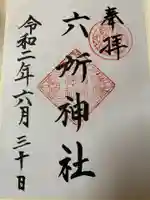 奉拝
六所神社
令和二年六月三十日